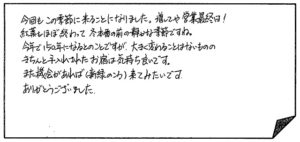 今回もこの季節に来ることになりました。増してや営業最終日！
紅葉もほぼ終わって冬本番の前の静かな季節ですね。
今年で150年になるとのことですが、大きく変わることはないものの
きちんと手入れされたお庭は気持ち良いです。
また機会があれば（新緑のころ）来てみたいです。
ありがとうございました。